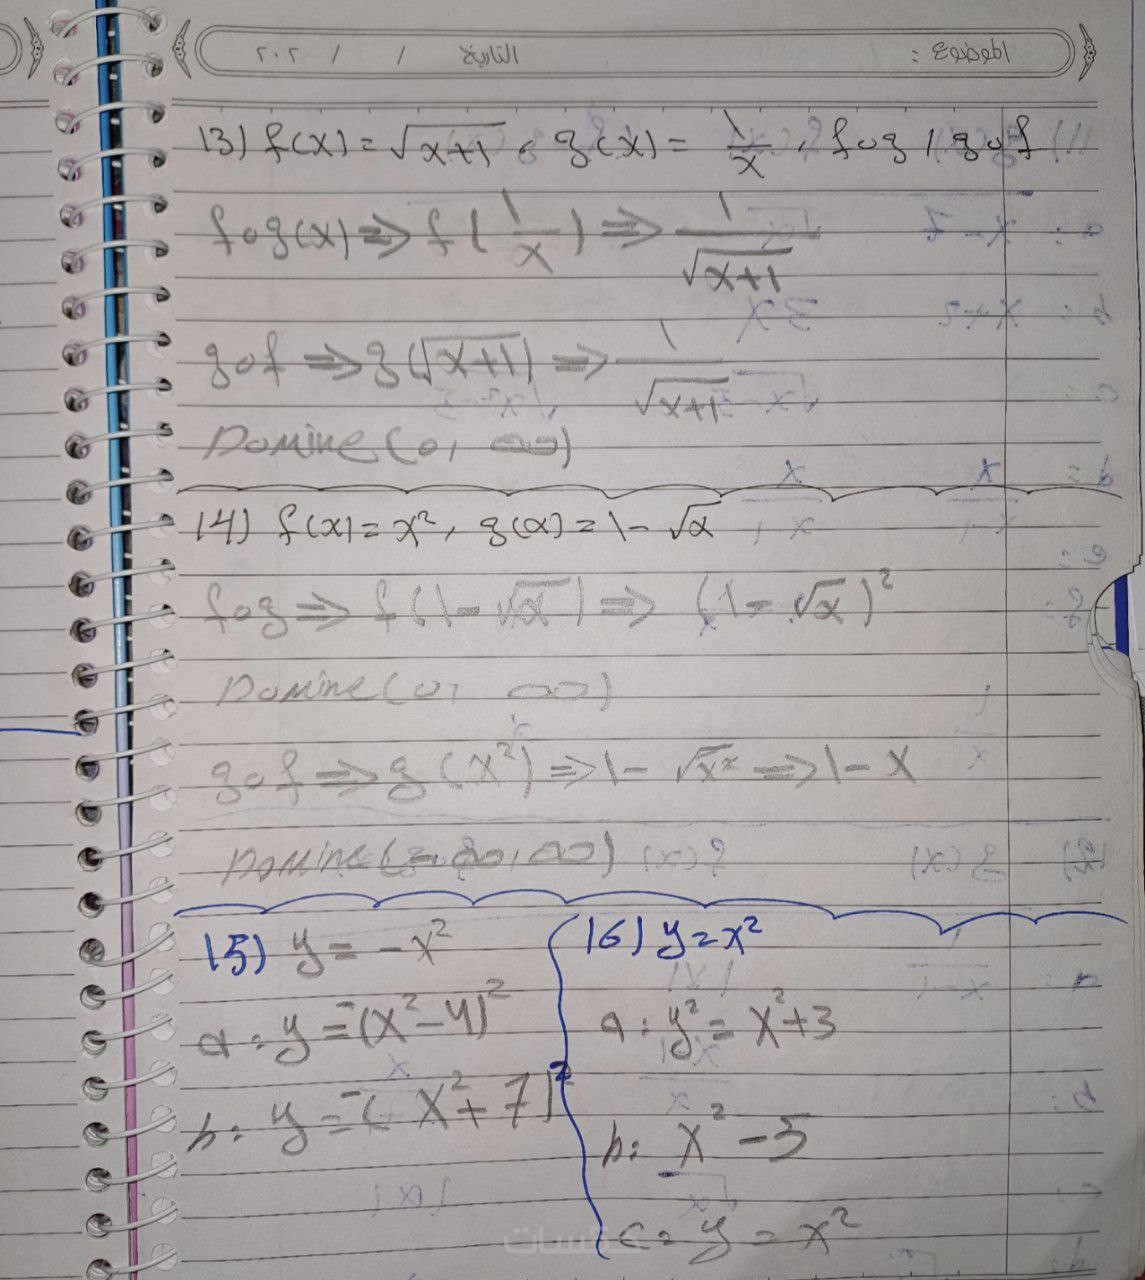 الموضوع :
التاريخ / / ٢٠٢
13) f(x) = √x+1 , g(x) = 1/x , fog / gof
fog(x) ⇒ f(1/x) ⇒ 1/√x+1
gof ⇒ g(√x+1) ⇒ 1/√x+1
Domine (0, ∞)
14) f(x) = x², g(x) = 1 - √x
fog ⇒ f(1-√x) ⇒ (1-√x)²
Domine (0, ∞)
gof ⇒ g(x²) ⇒ 1 - √x² ⇒ 1 - x
Domine (-∞, ∞)
15) y = -x²
a: y = -(x²-4)²
b: y = -(x²+7)²
16) y = x²
a: y² = x²+3
b: x² - 5
c= y = x²